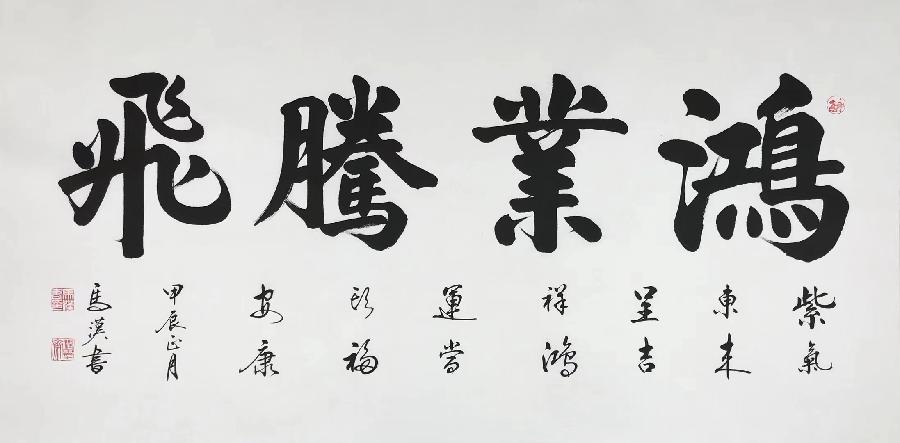 鴻業騰飛
紫氣
東来
呈吉
祥鴻
運當
頭福
安康
甲辰正月
馬漢書